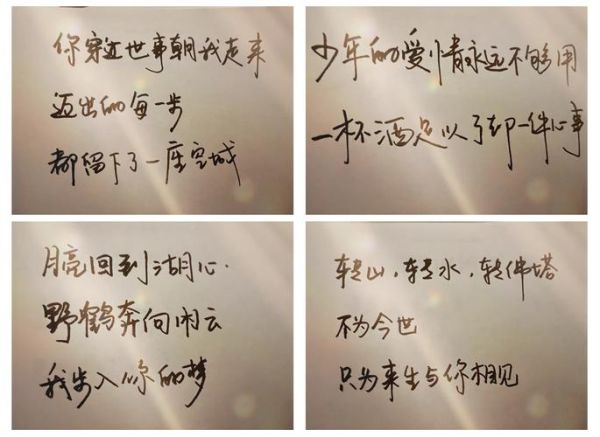 你穿过世事朝我走来
迈出的每一步
都留下了一座空城
少年的爱情永远不够用
一杯酒足以了却一件心事
月亮回到湖心
野鹤奔向闲云
我步入你的梦
转山，转水，转佛塔
不为今世
只为来生与你相见